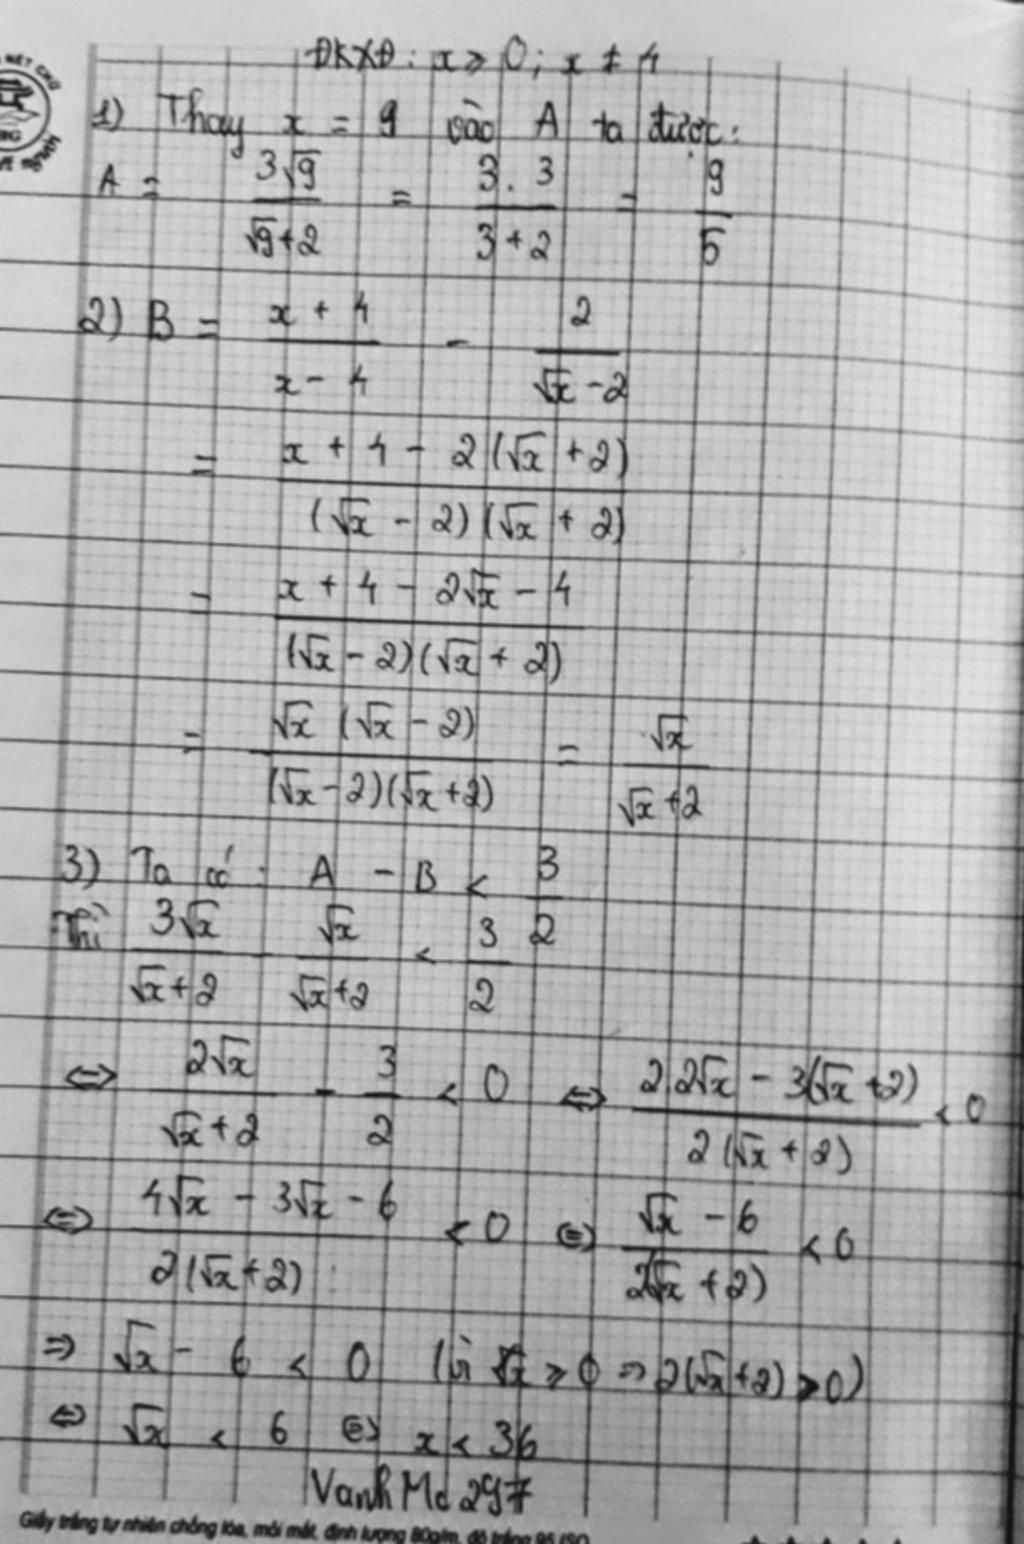 ĐKXĐ: x ≥ 0; x ≠ 4
1) Thay x = 9 vào A ta được:
A = 3√9/(√9+2) = 3.3/(3+2) = 9/5
2) B = (x+4)/(x-4) - 2/(√x-2)
= (x+4-2(√x+2))/((√x-2)(√x+2))
= (x+4-2√x-4)/((√x-2)(√x+2))
= √x(√x-2)/((√x-2)(√x+2)) = √x/(√x+2)
3) Ta có: A - B < 3/2
Thì 3√x/(√x+2) - √x/(√x+2) < 3/2
⇔ 2√x/(√x+2) - 3/2 < 0 ⇔ (2.2√x - 3(√x+2))/(2(√x+2)) < 0
⇔ (4√x - 3√x - 6)/(2(√x+2)) < 0 ⇔ (√x - 6)/(2(√x+2)) < 0
⇒ √x - 6 < 0 (vì √x ≥ 0 ⇒ 2(√x+2) > 0)
⇔ √x < 6 ⇔ x < 36
VanhMd297
Giấy trắng tự nhiên chống lóa, mỏi mắt, định lượng 80g/m, độ trắng 95 ISO